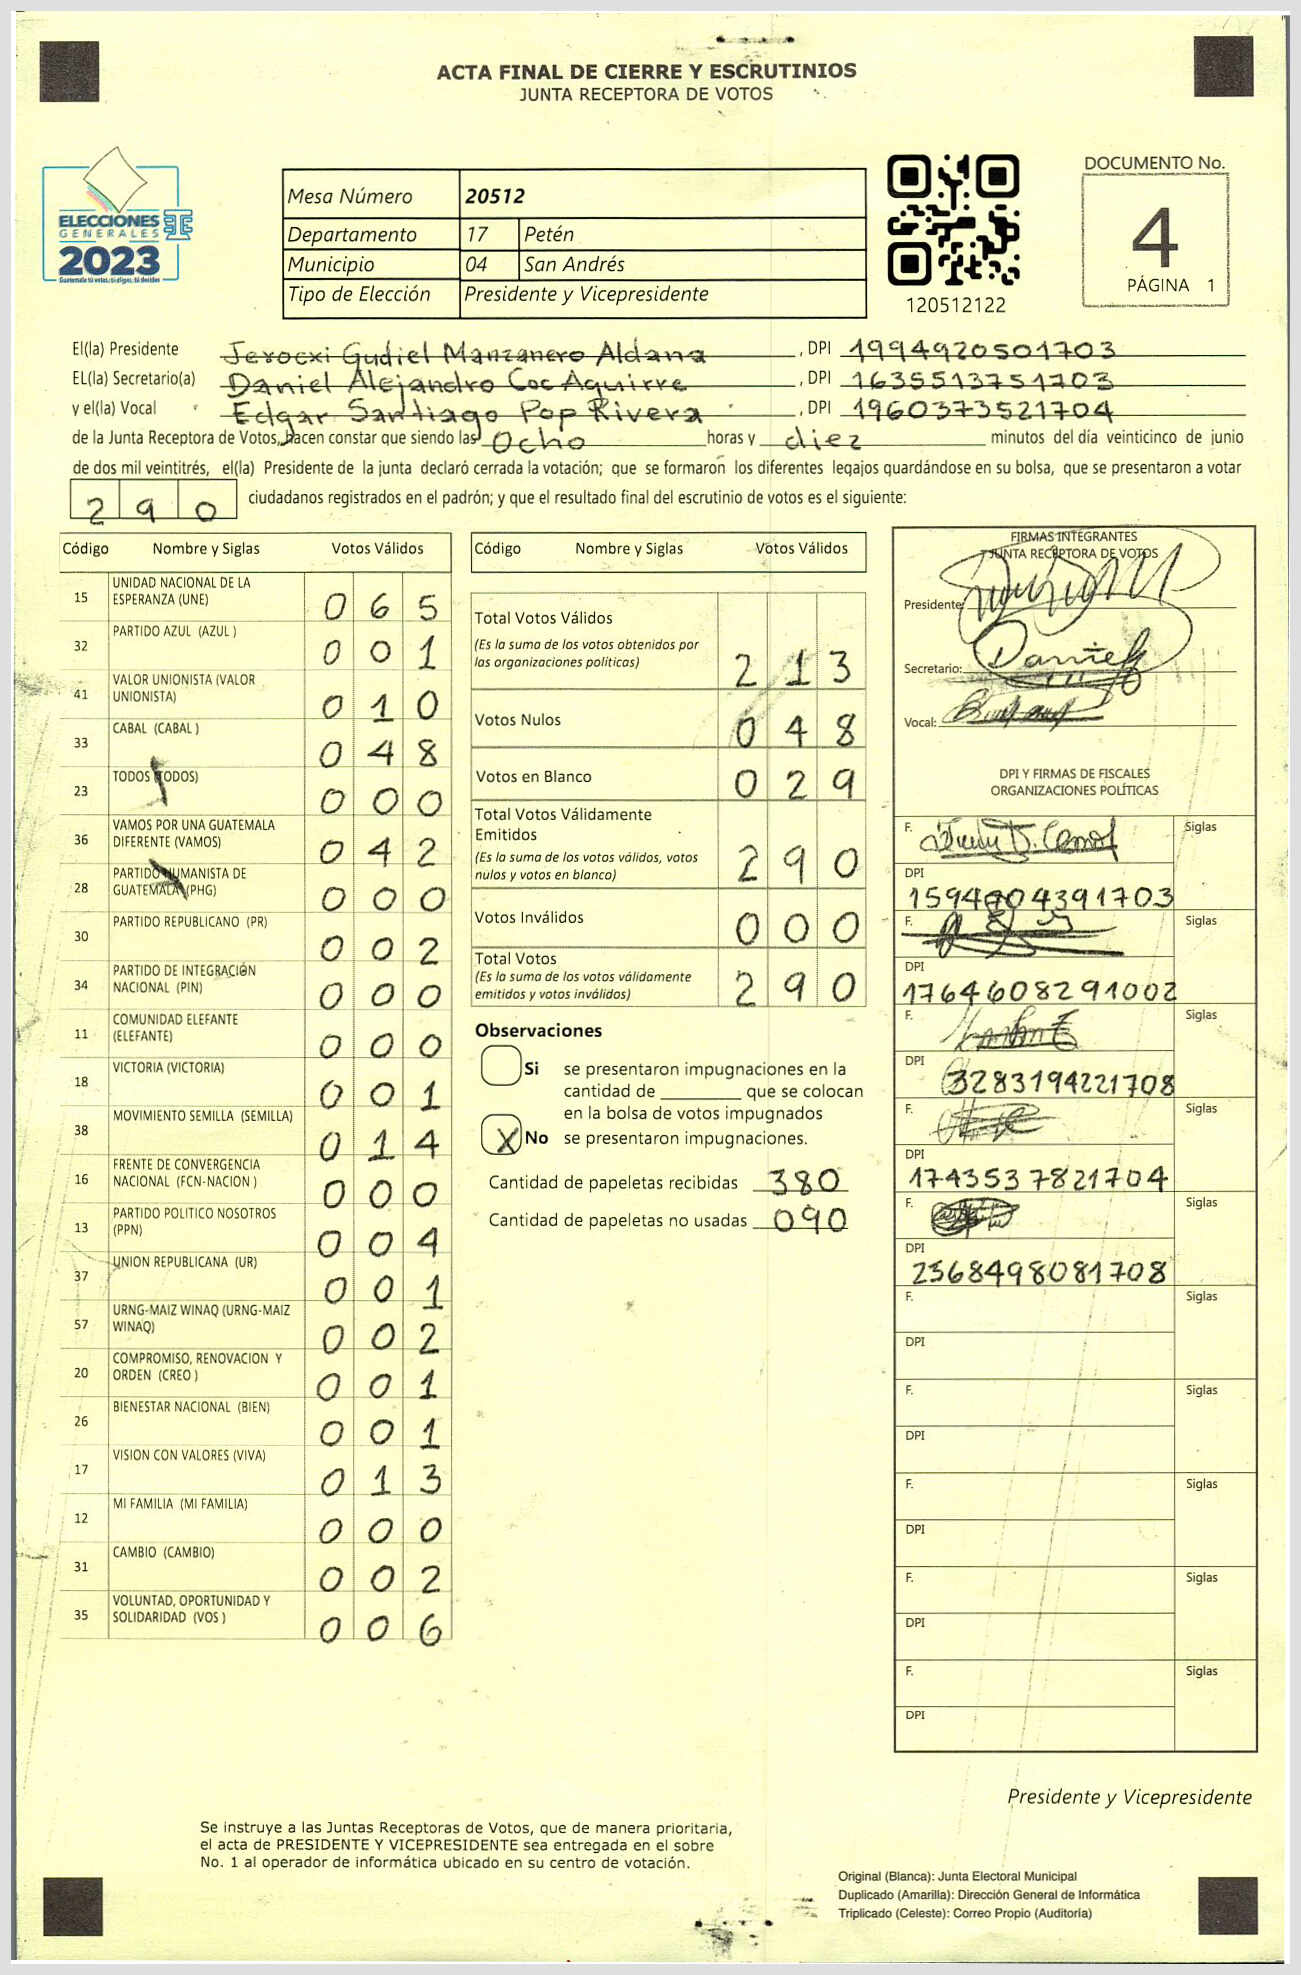 ACTA FINAL DE CIERRE Y ESCRUTINIOS
JUNTA RECEPTORA DE VOTOS
ELECCIONES
GENERALES
2023
Guatemala tú votas, tú eliges, tú decides
Mesa Número 20512
Departamento 17 Petén
Municipio 04 San Andrés
Tipo de Elección Presidente y Vicepresidente
120512122
DOCUMENTO No.
4
PÁGINA 1
El(la) Presidente Jerocxi Gudiel Manzanero Aldana, DPI 1994920501703
EL(la) Secretario(a) Daniel Alejandro Coc Aguirre, DPI 1635513751703
y el(la) Vocal Edgar Santiago Pop Rivera, DPI 1960373521704
de la Junta Receptora de Votos, hacen constar que siendo las Ocho horas y diez minutos del día veinticinco de junio
de dos mil veintitrés, el(la) Presidente de la junta declaró cerrada la votación; que se formaron los diferentes legajos guardándose en su bolsa, que se presentaron a votar
290 ciudadanos registrados en el padrón; y que el resultado final del escrutinio de votos es el siguiente:
Código Nombre y Siglas Votos Válidos
15 UNIDAD NACIONAL DE LA
ESPERANZA (UNE) 065
32 PARTIDO AZUL (AZUL ) 001
41 VALOR UNIONISTA (VALOR
UNIONISTA) 010
33 CABAL (CABAL ) 048
23 TODOS (TODOS) 000
36 VAMOS POR UNA GUATEMALA
DIFERENTE (VAMOS) 042
28 PARTIDO HUMANISTA DE
GUATEMALA (PHG) 000
30 PARTIDO REPUBLICANO (PR) 002
34 PARTIDO DE INTEGRACIÓN
NACIONAL (PIN) 000
11 COMUNIDAD ELEFANTE
(ELEFANTE) 000
18 VICTORIA (VICTORIA) 001
38 MOVIMIENTO SEMILLA (SEMILLA) 014
16 FRENTE DE CONVERGENCIA
NACIONAL (FCN-NACION ) 000
13 PARTIDO POLITICO NOSOTROS
(PPN) 004
37 UNION REPUBLICANA (UR) 001
57 URNG-MAIZ WINAQ (URNG-MAIZ
WINAQ) 002
20 COMPROMISO, RENOVACION Y
ORDEN (CREO ) 001
26 BIENESTAR NACIONAL (BIEN) 001
17 VISION CON VALORES (VIVA) 013
12 MI FAMILIA (MI FAMILIA) 000
31 CAMBIO (CAMBIO) 002
35 VOLUNTAD, OPORTUNIDAD Y
SOLIDARIDAD (VOS ) 006
Código Nombre y Siglas Votos Válidos
Total Votos Válidos
(Es la suma de los votos obtenidos por
las organizaciones políticas) 213
Votos Nulos 048
Votos en Blanco 029
Total Votos Válidamente
Emitidos
(Es la suma de los votos válidos, votos
nulos y votos en blanco) 290
Votos Inválidos 000
Total Votos
(Es la suma de los votos válidamente
emitidos y votos inválidos) 290
Observaciones
Si se presentaron impugnaciones en la
cantidad de ________ que se colocan
en la bolsa de votos impugnados
X No se presentaron impugnaciones.
Cantidad de papeletas recibidas 380
Cantidad de papeletas no usadas 090
FIRMAS INTEGRANTES
JUNTA RECEPTORA DE VOTOS
Presidente:
Secretario: Daniel
Vocal:
DPI Y FIRMAS DE FISCALES
ORGANIZACIONES POLÍTICAS
F. Siglas
DPI
1594704391703
F. Siglas
DPI
1764608291002
F. Siglas
DPI
3283194221708
F. Siglas
DPI
1743537821704
F. Siglas
DPI
2368498081708
F. Siglas
DPI
F. Siglas
DPI
F. Siglas
DPI
F. Siglas
DPI
F. Siglas
DPI
Presidente y Vicepresidente
Se instruye a las Juntas Receptoras de Votos, que de manera prioritaria,
el acta de PRESIDENTE Y VICEPRESIDENTE sea entregada en el sobre
No. 1 al operador de informática ubicado en su centro de votación.
Original (Blanca): Junta Electoral Municipal
Duplicado (Amarilla): Dirección General de Informática
Triplicado (Celeste): Correo Propio (Auditoría)